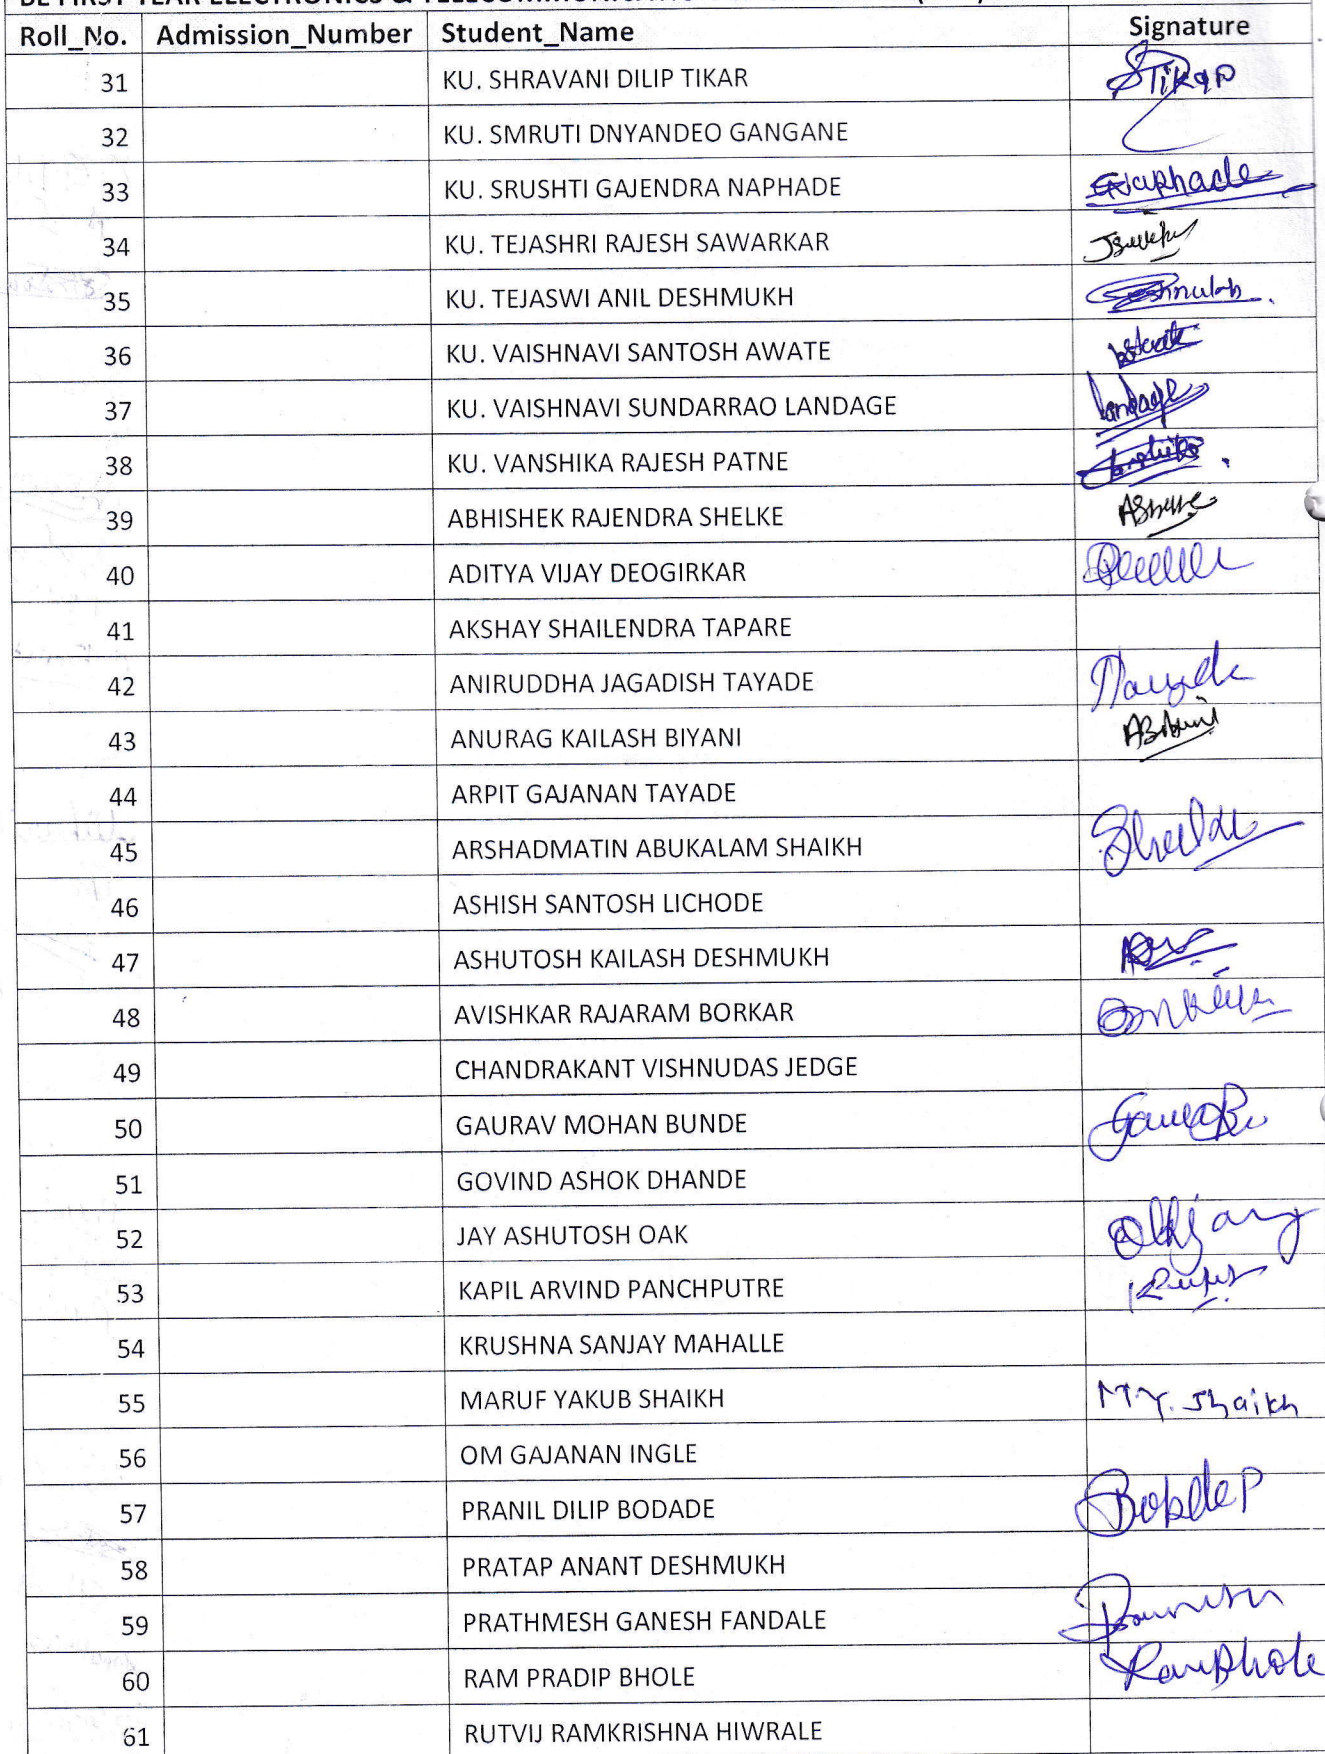 Roll_No. Admission_Number Student_Name Signature
31 KU. SHRAVANI DILIP TIKAR STikap
32 KU. SMRUTI DNYANDEO GANGANE
33 KU. SRUSHTI GAJENDRA NAPHADE
34 KU. TEJASHRI RAJESH SAWARKAR
35 KU. TEJASWI ANIL DESHMUKH
36 KU. VAISHNAVI SANTOSH AWATE
37 KU. VAISHNAVI SUNDARRAO LANDAGE Landage
38 KU. VANSHIKA RAJESH PATNE
39 ABHISHEK RAJENDRA SHELKE
40 ADITYA VIJAY DEOGIRKAR
41 AKSHAY SHAILENDRA TAPARE
42 ANIRUDDHA JAGADISH TAYADE
43 ANURAG KAILASH BIYANI
44 ARPIT GAJANAN TAYADE
45 ARSHADMATIN ABUKALAM SHAIKH
46 ASHISH SANTOSH LICHODE
47 ASHUTOSH KAILASH DESHMUKH
48 AVISHKAR RAJARAM BORKAR
49 CHANDRAKANT VISHNUDAS JEDGE
50 GAURAV MOHAN BUNDE
51 GOVIND ASHOK DHANDE
52 JAY ASHUTOSH OAK
53 KAPIL ARVIND PANCHPUTRE
54 KRUSHNA SANJAY MAHALLE
55 MARUF YAKUB SHAIKH M.Y. Shaikh
56 OM GAJANAN INGLE
57 PRANIL DILIP BODADE
58 PRATAP ANANT DESHMUKH
59 PRATHMESH GANESH FANDALE
60 RAM PRADIP BHOLE RamBhole
61 RUTVIJ RAMKRISHNA HIWRALE